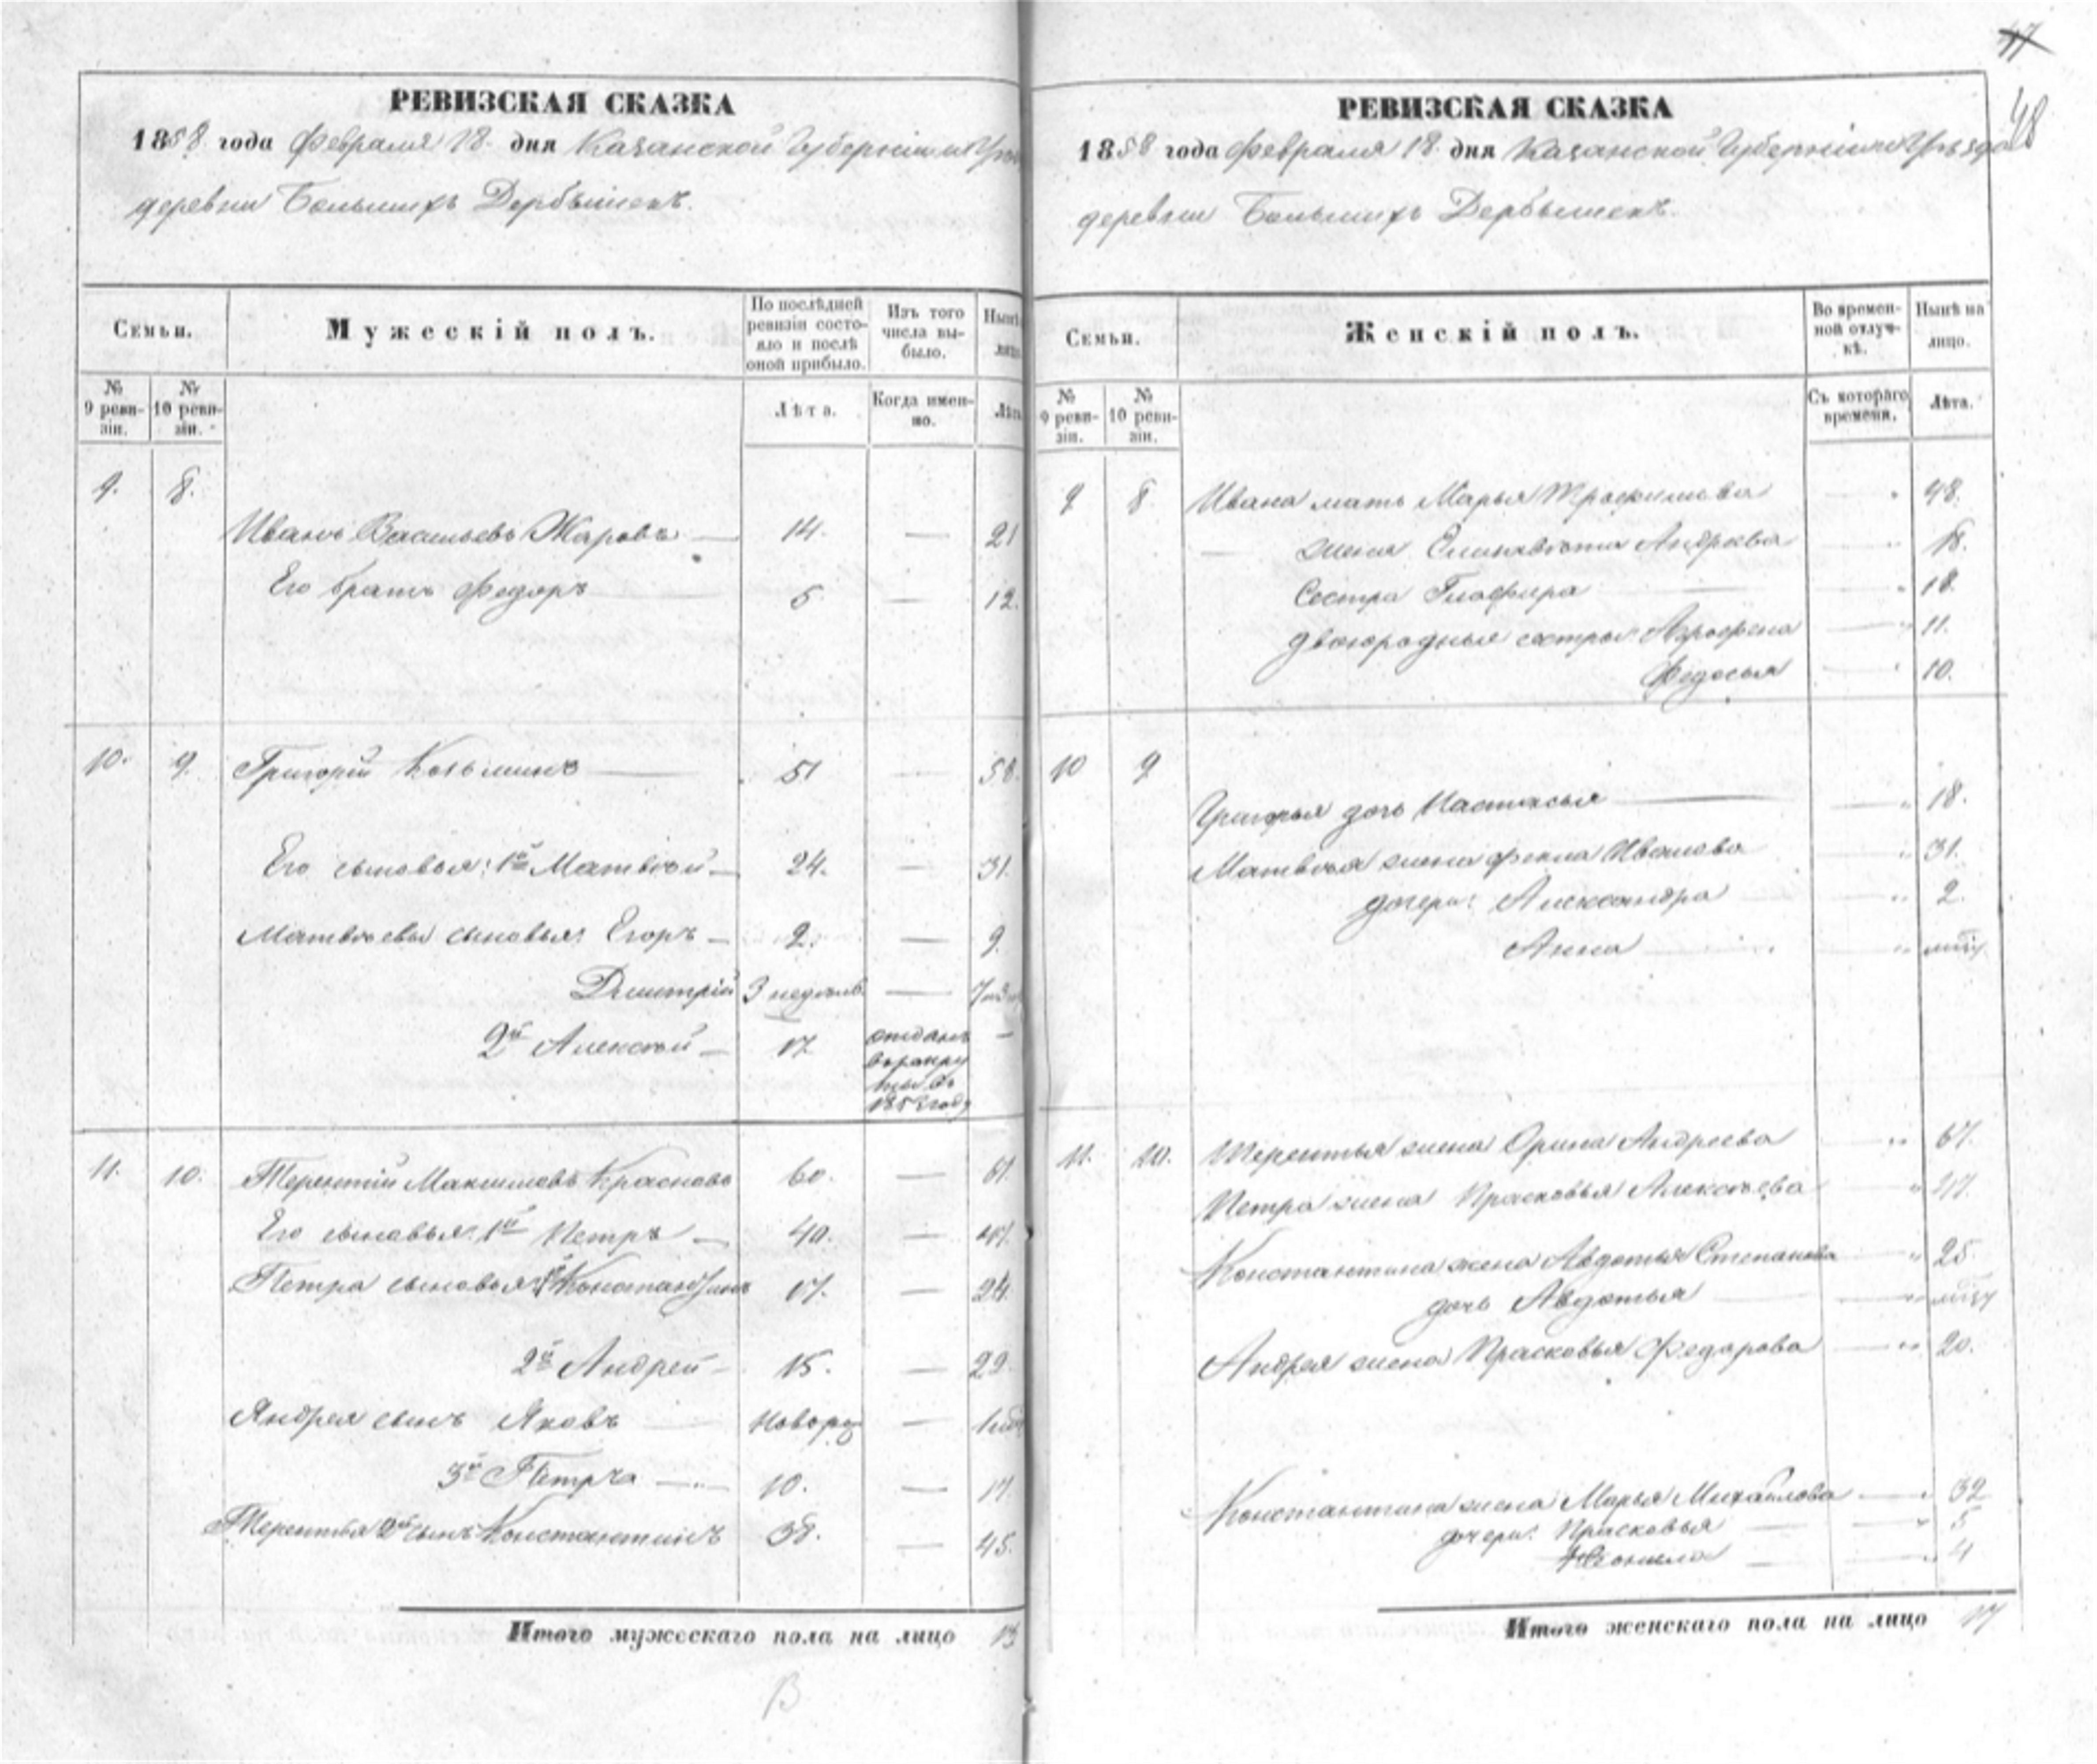 РЕВИЗСКАЯ СКАЗКА
1858 года Февраля 18. дня Казанской Губерніи и Уѣзда
деревни Большихъ Дербышекъ.
Семьи.
Мужескій полъ.
По послѣдней
ревизіи состо-
яло и послѣ
оной прибыло.
Изъ того
числа вы-
было.
Нынѣ
лицо
№
9 реви-
зіи.
№
10 реви-
зіи.
Лѣта.
Когда имен-
но.
Лѣта
9. 8.
Иванъ Васильевъ Жаровъ — 14. — 21
Его братъ Федоръ 5. — 12.
10. 9. Григорій Козьминъ — 51 — 58.
Его сыновья: 1й Матвѣй — 24. — 31.
Матвѣевы сыновья: Егоръ — 2. — 9.
Дмитрій 3 недѣль —
2й Алексѣй — 17 отданъ —
въ рекру
ты въ
году
11. 10. Терентій Максимовъ Красновъ 60. — 67.
Его сыновья: 1й Петръ — 40. — 47.
Петра сыновья: 1й Константинъ 17. — 24.
2й Андрей — 15. — 22.
Андрея сынъ Яковъ Новорож —
3й Петръ — 10. — 17.
Терентья 2й сынъ Константинъ 38. — 45.
Итого мужескаго пола на лицо 13
47
48
РЕВИЗСКАЯ СКАЗКА
1858 года Февраля 18. дня Казанской Губерніи и Уѣзда
деревни Большихъ Дербышекъ.
Семьи.
Женскій полъ.
Во времен-
ной отлуч-
кѣ.
Нынѣ на
лицо.
№
9 реви-
зіи.
№
10 реви-
зіи.
Съ котораго
времени.
Лѣта.
9 8 Ивана мать Марья Трофимова — 48.
жена Елизавета Андреева — 18.
Сестра Глафира — 18.
двоюродныя сестры: Аграфена — 11.
Федосья — 10.
10 9
Григорья дочь Настасья — 18.
Матвѣя жена Фекла Иванова 31.
дочери: Александра — 2.
Анна —
11. 10. Терентья жена Орина Андреева — 67.
Петра жена Прасковья Алексѣева 47.
Константина жена Авдотья Степанова 25.
дочь Авдотья —
Андрея жена Прасковья Федорова — 20.
Константина жена Марья Михайлова — 32
дочери: Прасковья — 5
— 4
Итого женскаго пола на лицо 17